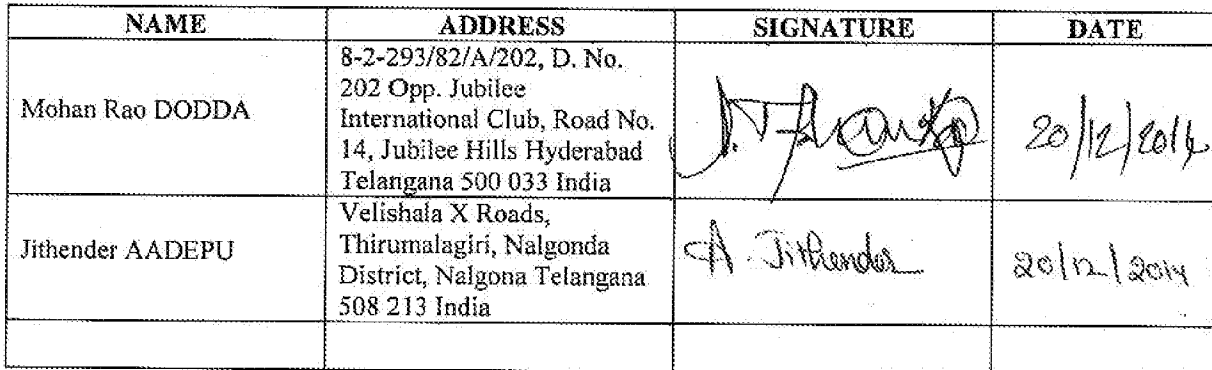 NAME ADDRESS SIGNATURE DATE
Mohan Rao DODDA
8-2-293/82/A/202, D. No.
202 Opp. Jubilee
International Club, Road No.
14, Jubilee Hills Hyderabad
Telangana 500 033 India
20/12/2014
Jithender AADEPU
Velishala X Roads,
Thirumalagiri, Nalgonda
District, Nalgona Telangana
508 213 India
A. Jithender
20/12/2014